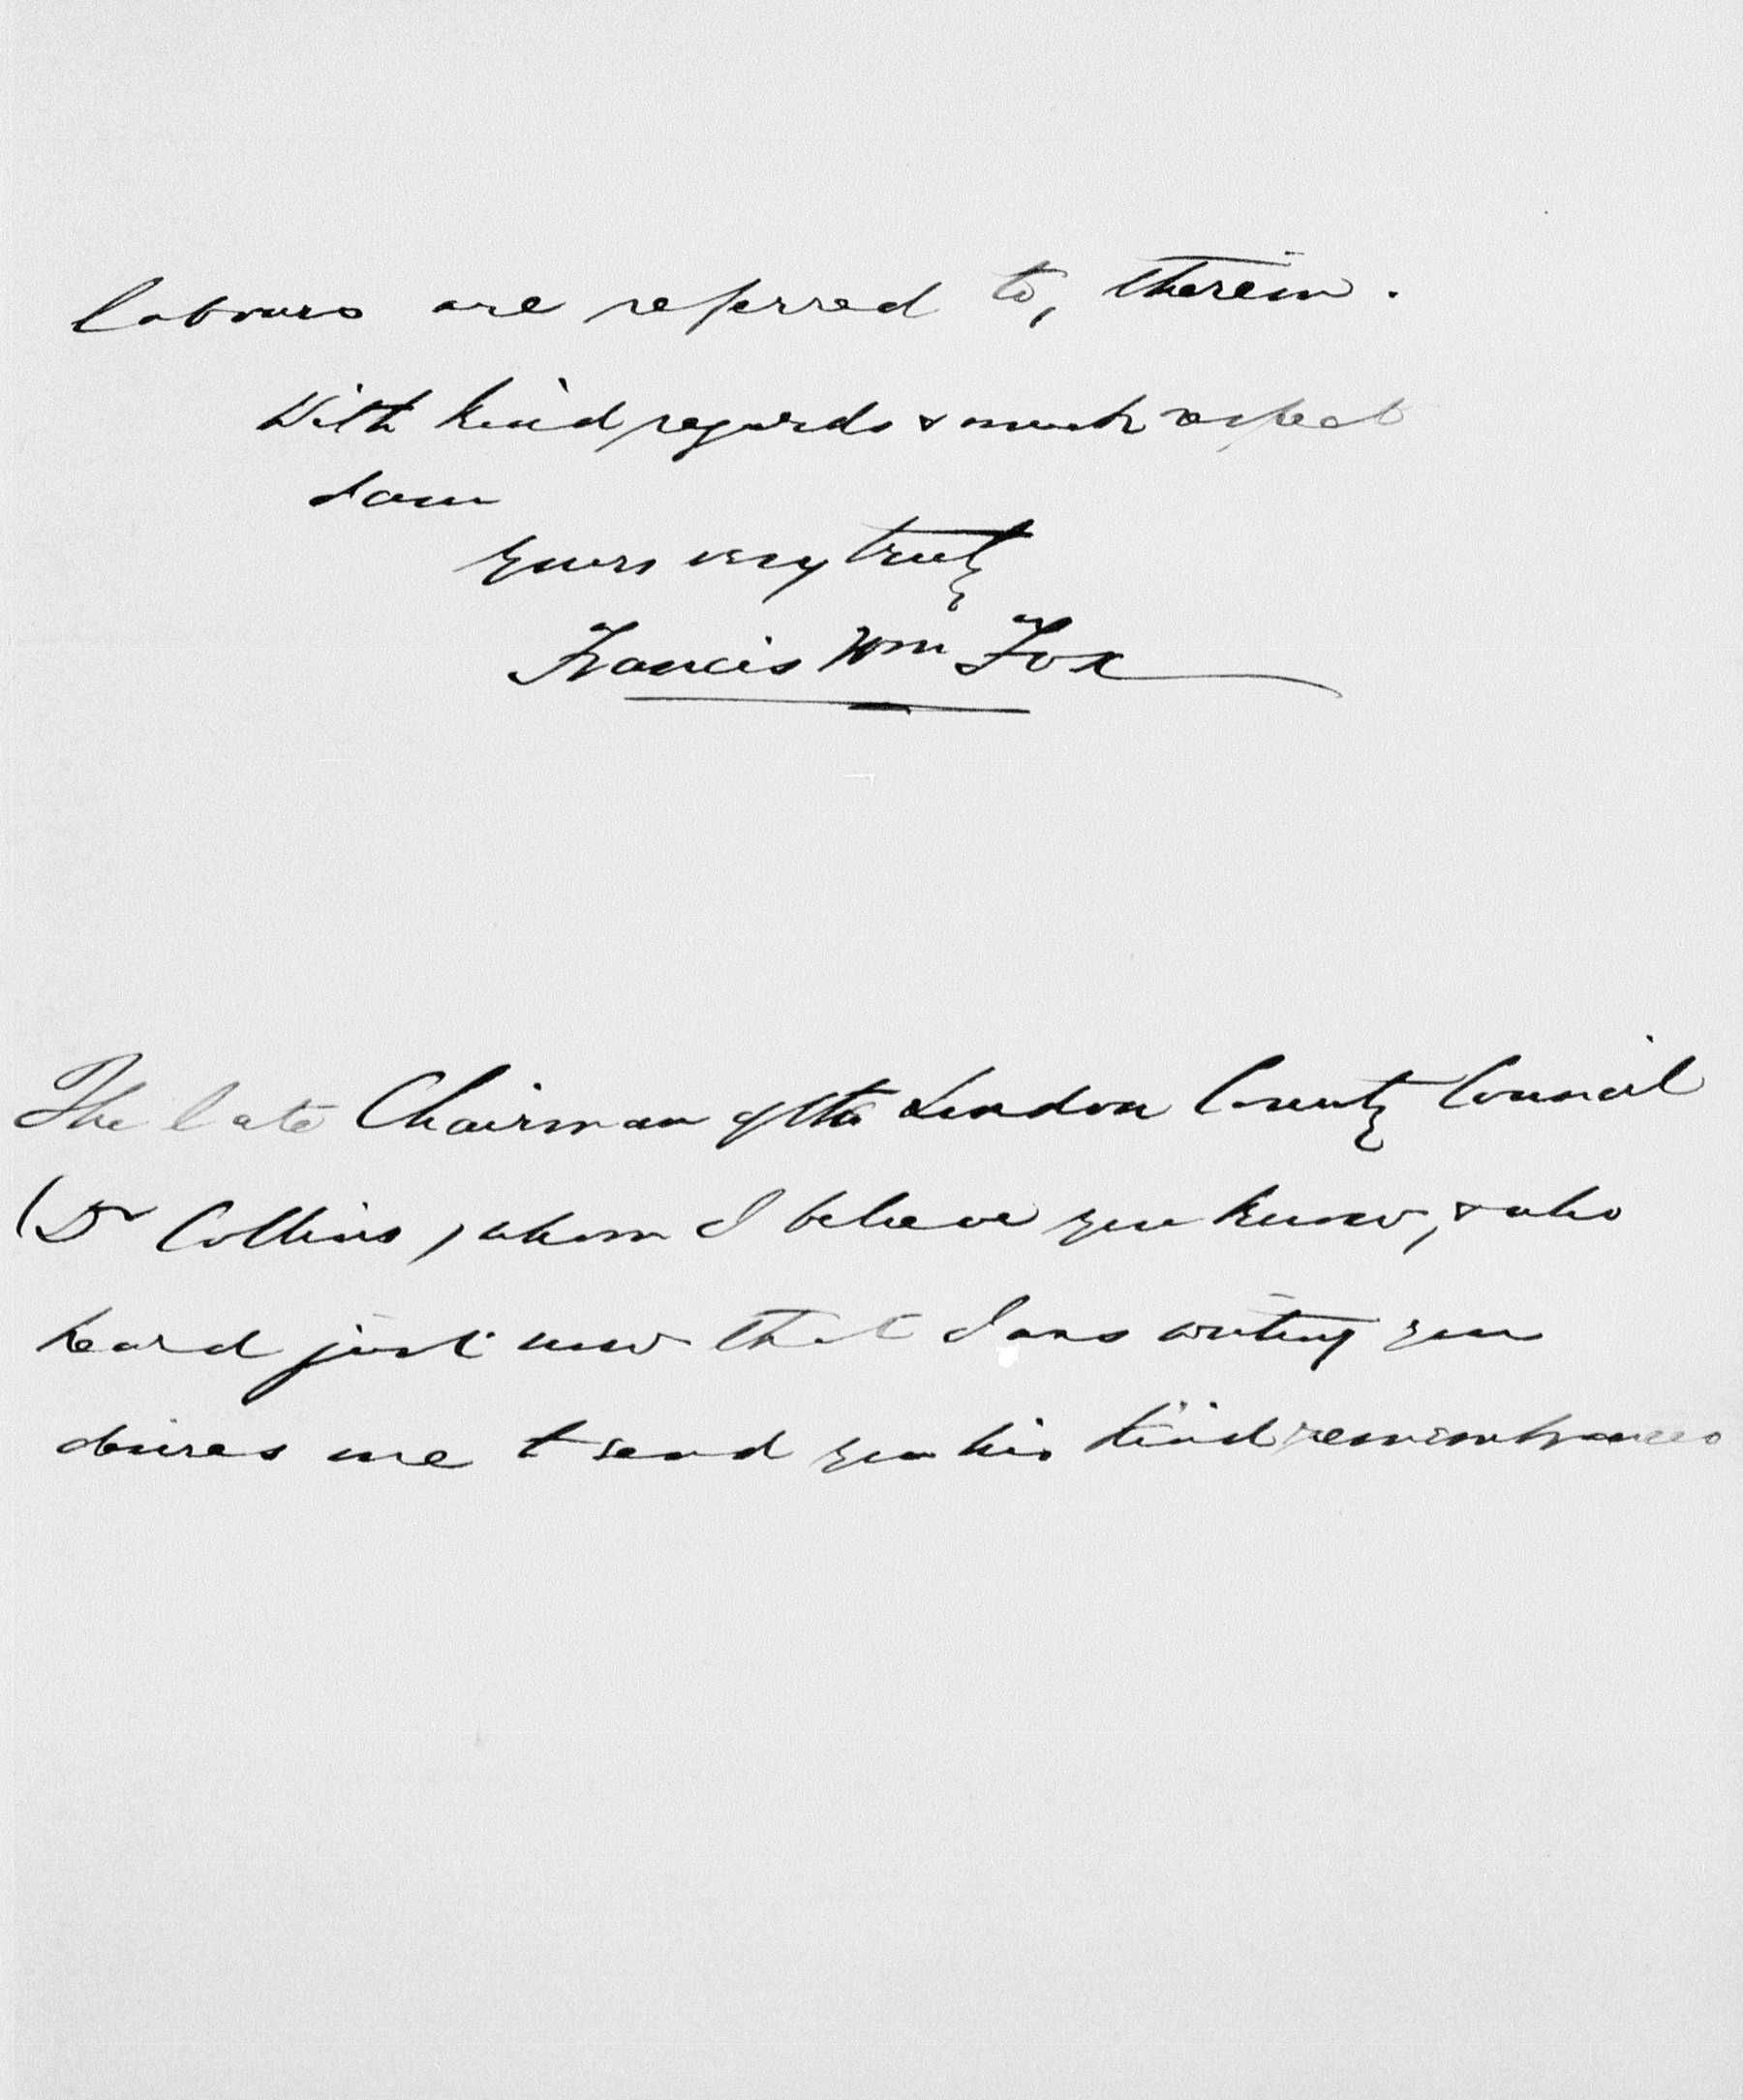 labours are referred to, therein.
With kind regards & much respect
I am
yours very truly
Francis Wm Fox
The late Chairman of the London County Council
(Dr Collins) whom I believe you know, & who
heard just now that I was writing you
desires me to send you his kind remembrances